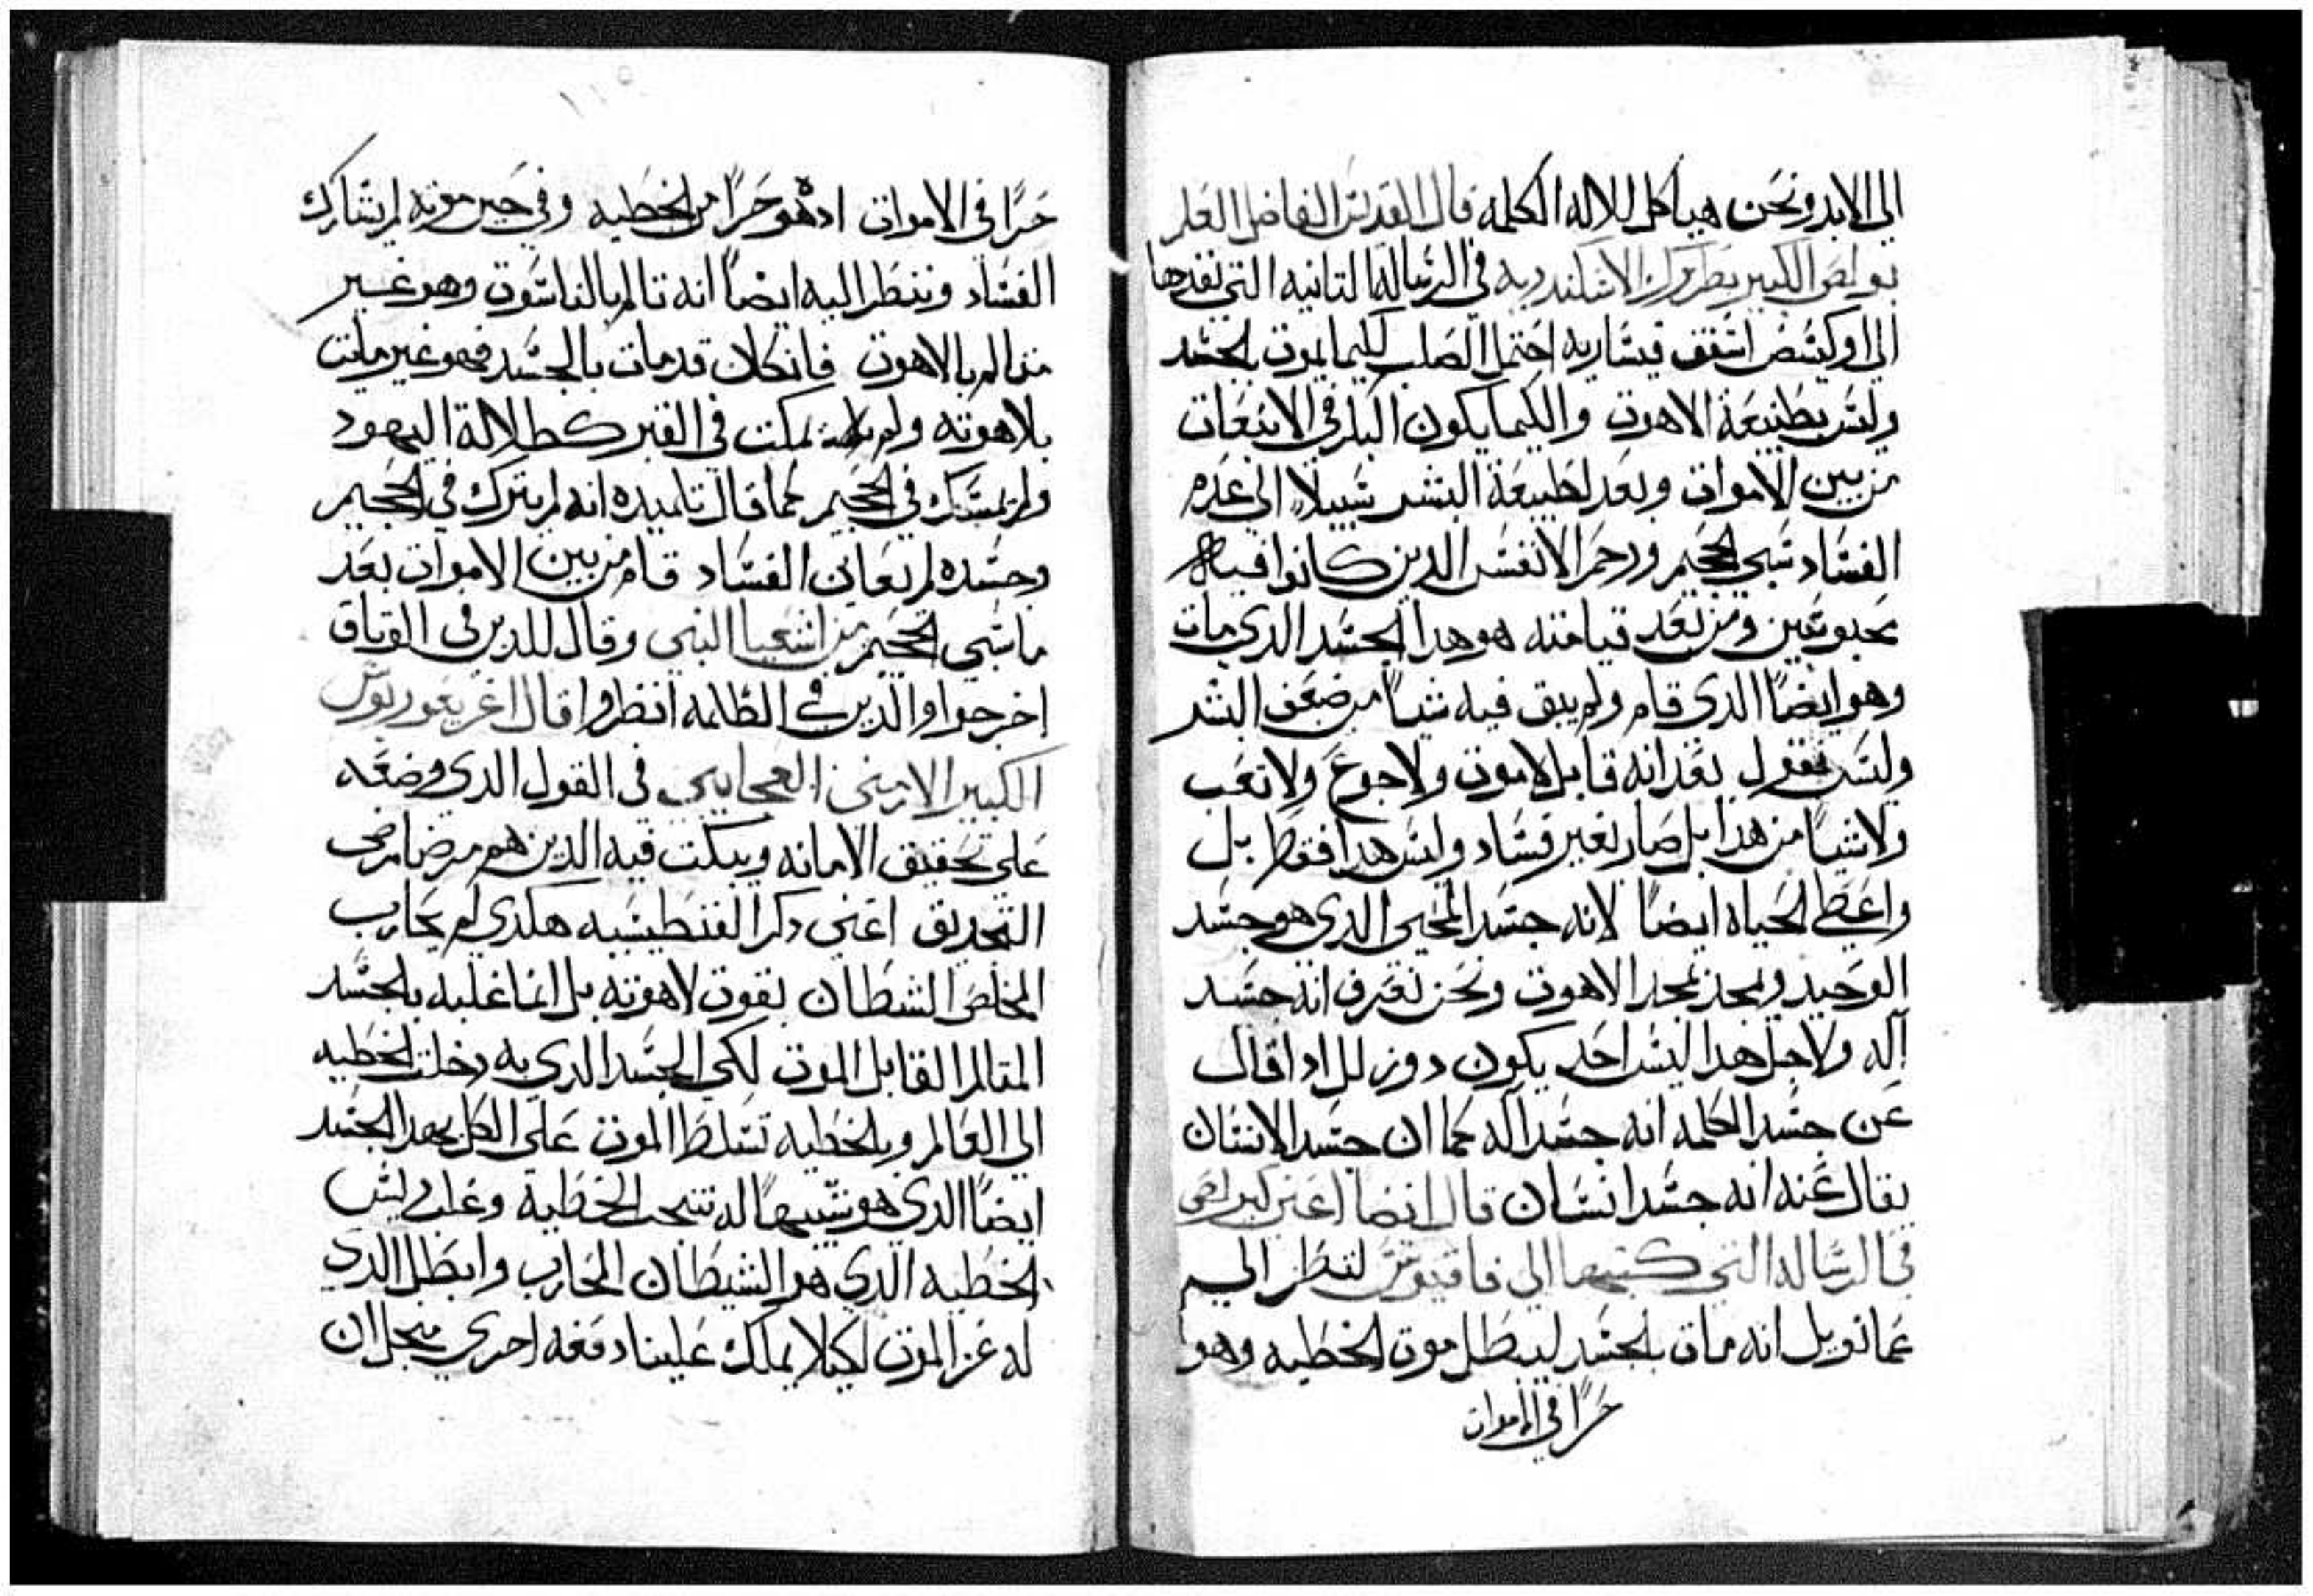 الى الابد ونحن هياكل للاله الكلمه قال القديس الفاضل
الكبير بطريرك الاسكندريه في الرساله التانيه التي نفدها
الى اوكيسس اسقف قيساريه احتمل الصلب لكيما يموت بالجسد
وليس بطبيعة الاهوت والكيما يكون البكر في الانبعات
من بين الاموات وبعد لطبيعة البشر سبيلاً الى عدم
الفساد سبي الجحيم ورحم الانفس الدين كانوا فيه
محبوسين ومن بعد قيامته هو هدا الجسد الدي مات
وهو ايضاً الدي قام ولم يبق فيه شياً من ضعف البشر
وليس نقول بعد انه قابل لاموت ولا جوع ولا تعب
ولا شياً من هدا بل صار بغير فساد وليس هدا فقط بل
واعطي الحياه ايضاً لانه جسد المحيي الدي هو جسد
الوحيد ويمجد بمجد الاهوت ونحن نعترف انه جسد
اله ولاجل هدا ليس احد يكون دورلل ادا قال
عن جسد الكلمه انه جسد اله كما ان جسد الانسان
يقال عنه انه جسد انسان قال ايضا اعني
في الرساله التي كتبها الى فاقيوس لننظر الى
عمانويل انه مات بالجسد ليبطل موت الخطيه وهو
حرًا في الاموات
١١٥
حرًا في الاموات اد هو حرًا من الخطيه وفي حين موته لم يشارك
الفساد وننظر اليه ايضاً انه تالم بالناسوت وهو غير
متالم بالاهوت فانكان قد مات بالجسد فهو غير مايت
بلاهوته ولم يمكت في القبر كطلالة اليهود
ولم يمسك في الجحيم كما قال تلميده انه لم يترك في الجحيم
وجسده لم يعاين الفساد قام من بين الاموات بعد
ما سبي الجحيم من اشعيا النبي وقال للدين في الوتاق
اخرجوا والدين في الظلمه انظروا قال اغريغوريوس
الكبير الارمني العجايبي في القول الدي وضعه
على تحقيق الامانه ويبكت فيه الدين هم مرضا مرض
التجديق اعني دكر الفنطيسيه هكدي لم يحارب
المخلص الشطان بقوت لاهوته بل انما غلبه بالجسد
المتالم القابل الموت لكي الجسد الدي به دخلت الخطيه
الى العالم وبالخطيه تسلط الموت على الكل بهدا الجسد
ايضاً الدي هو شبيهاً له شجب الخطية وغلب ليس
الخطيه الدي هو الشيطان المحارب وابطل الدي
له عز الموت لكيلا يملك علينا دفعه اخري منجل ان